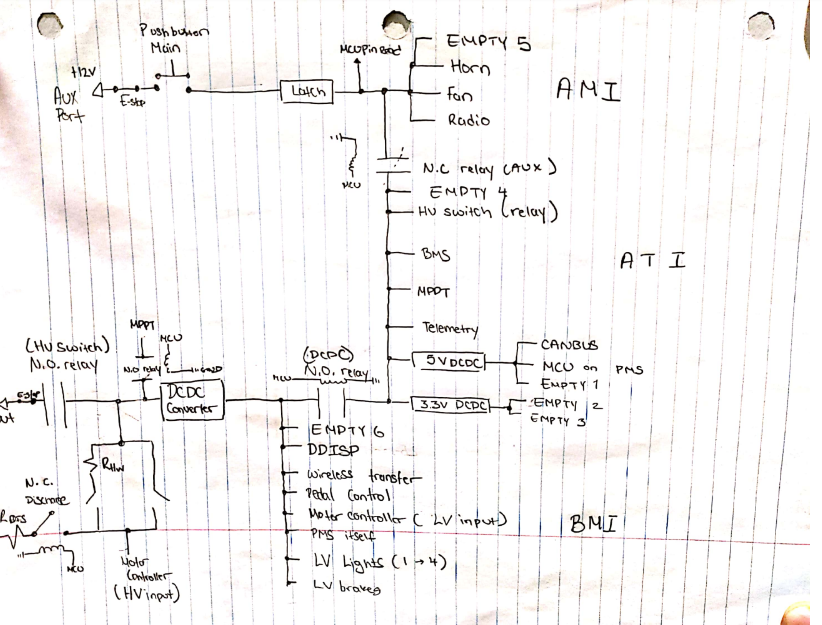 Pushbutton
Main
+12V
AUX
Port
E-stp
Latch
EMPTY 5
Horn
Fan
Radio
AMI
MCU
N.C relay (AUX)
EMPTY 4
HV switch (relay)
BMS
MPPT
Telemetry
ATI
5V DCDC
CANBUS
MCU on PMS
EMPTY 1
3.3V DCDC
EMPTY 2
EMPTY 3
(HV switch)
N.O. relay
MPPT
MCU
N.O relay
DCDC
Converter
(DCDC)
N.O. relay
MCU
EMPTY 6
DDISP
wireless transfer
Pedal Control
Motor controller (LV input)
PMS itself
LV Lights (1→4)
LV brakes
BMI
N.C.
Discharge
MCU
Motor
Controller
(HV input)